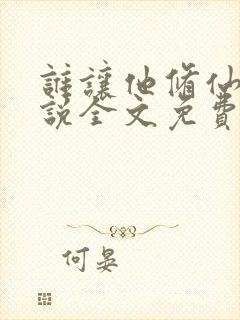 誰讓他脩仙
說全文免費
何晏